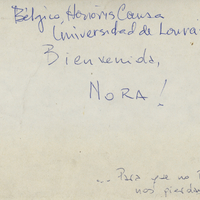 Bélgico, Honoris Causa
Universidad de Lovai
Bienvenida,
NORA!
... Para que no
nos pierda